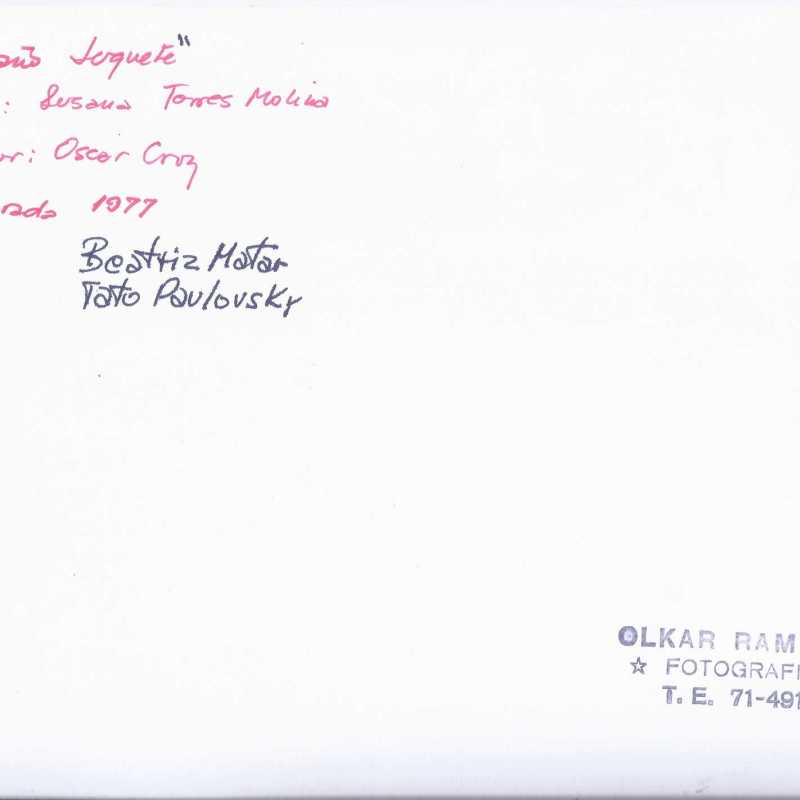 año Juguete"
: Susana Torres Molina
or: Oscar Cruz
rada 1977
Beatriz Matar
Tato Pavlovsky
OLKAR RAM
☆ FOTOGRAFI
T. E. 71-491